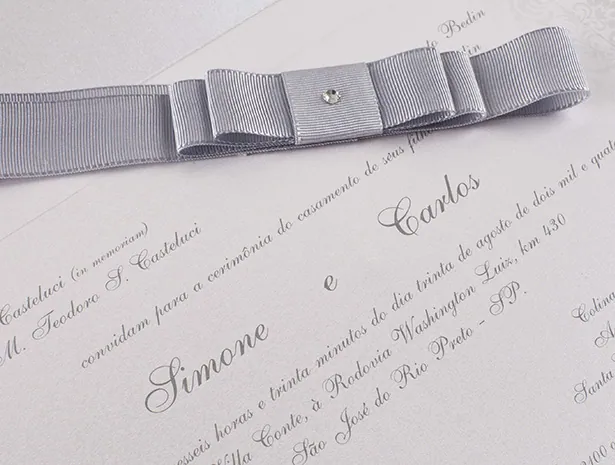 Bedin
Casteluci (in memoriam)
M. Teodoro S. Casteluci
convidam para a cerimônia do casamento de seus
Simone
e
Carlos
horas e trinta minutos do dia trinta de agosto de dois mil e
Conte, à Rodovia Washington Luiz, km 430
São José do Rio Preto - SP.
Santa